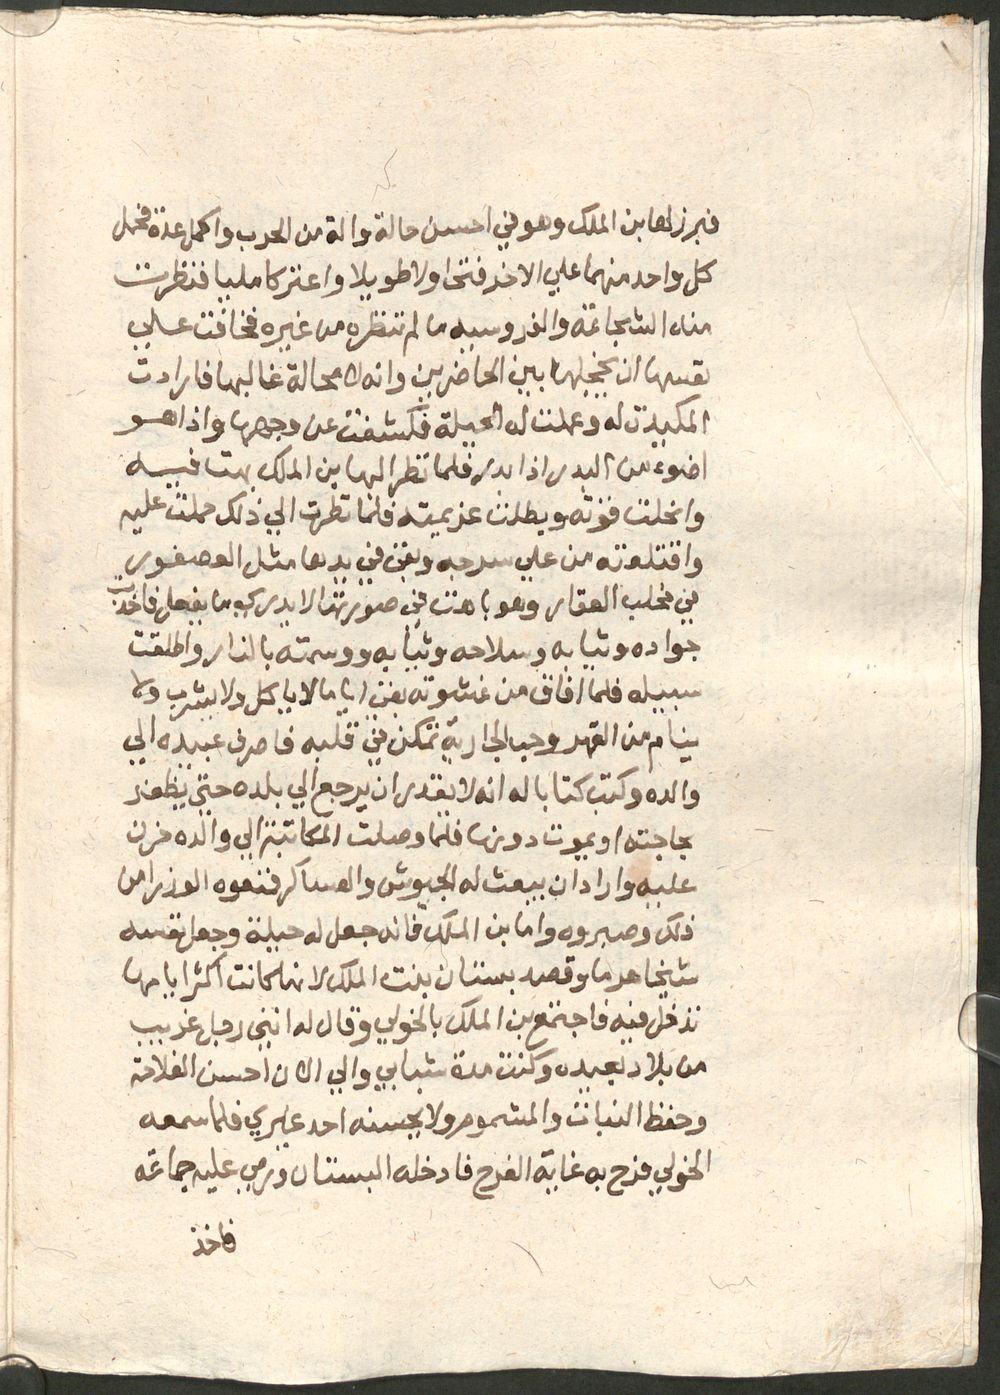 فبرز لها بن الملك وهو في احسن حالة والة من الحرب واكمل عدة فحمل
كل واحد منهما علي الاخر فتحاولا طويلا واعتركا مليا فنظرت
منه الشجاعة والفروسيه ما لم تنظره من غيره فخافت علي
نفسها ان يخجلها بين الحاضرين وانه لا محالة غالبها فارادت
المكيدت له وعملت له الحيلة فكشفت عن وجهها واذا هو
اضوء من البدر اذا بدر فلما نظر اليها بن الملك بهت فيه
وانحلت قوته وبطلت عزيمته فلما نظرت الي ذلك حملت عليه
واقتلعته من علي سرجه وبقي في يدها مثل العصفور
في مخلب العقاب وهو باهت في صورتها لا يدري ما يفعل فاخذت
جواده وثيابه وسلاحه وثيابه ووسمته بالنار واطلقت
سبيله فلما افاق من غشوته بقي اياما لا ياكل ولا يشرب ولا
ينام من القهر وحب الجارية تمكن في قلبه فاصرف عبيده الي
والده وكتب كتابا له انه لا يقدر ان يرجع الي بلده حتي يظفر
بحاجته او يموت دونها فلما وصلت المكاتبة الي والده حزن
عليه واراد ان يبعث له الجيوش والعساكر فمنعوه الوزرا من
ذلك وصبروه واما بن الملك فانه جعل له حيلة وجعل نفسه
شيخا هرما وقصد بستان بنت الملك لانها كانت اكثر ايامها
تدخل فيه فاجتمع بن الملك بالخولي وقال له انني رجل غريب
من بلاد بعيده وكنت مدة شبابي والي الان احسن الفلاحة
وحفظ النبات والمشموم ولا يحسنه احد غيري فلما سمعه
الخولي فرح به غاية الفرح فادخله البستان ورمي عليه جماعة
فاخذ